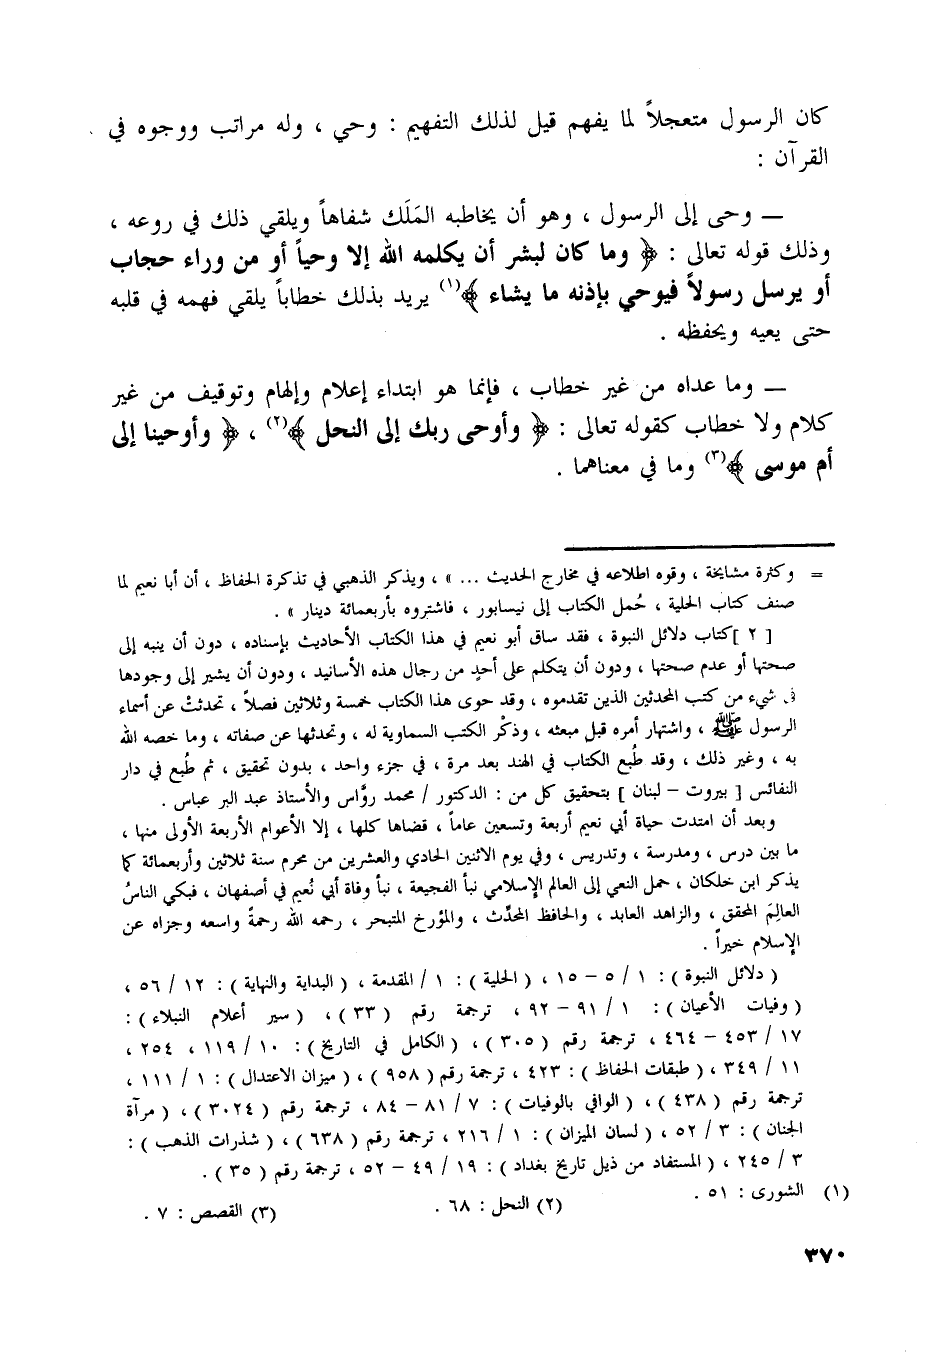 كان الرسول متعجلاً لما يفهم قيل لذلك التفهيم : وحي ، وله مراتب ووجوه في
القرآن :
— وحى إلى الرسول ، وهو أن يخاطبه المَلَك شفاهاً ويلقي ذلك في روعه ،
وذلك قوله تعالى : ﴿ وما كان لبشر أن يكلمه الله إلا وحياً أو من وراء حجاب
أو يرسل رسولاً فيوحي بإذنه ما يشاء ﴾(١) يريد بذلك خطاباً يلقي فهمه في قلبه
حتى يعيه ويحفظه .
— وما عداه من غير خطاب ، فإنما هو ابتداء إعلام وإلهام وتوقيف من غير
كلام ولا خطاب كقوله تعالى : ﴿ وأوحى ربك إلى النحل ﴾(٢) ، ﴿ وأوحينا إلى
أم موسى ﴾(٣) وما في معناهما .
= وكثرة مشايخة ، وقوه اطلاعه في مخارج الحديث ... » ، ويذكر الذهبي في تذكرة الحفاظ ، أن أبا نعيم لما
صنف كتاب الحلية ، حُمل الكتاب إلى نيسابور ، فاشتروه بأربعمائة دينار » .
[ ٢ ] كتاب دلائل النبوة ، فقد ساق أبو نعيم في هذا الكتاب الأحاديث بإسناده ، دون أن ينبه إلى
صحتها أو عدم صحتها ، ودون أن يتكلم على أحدٍ من رجال هذه الأسانيد ، ودون أن يشير إلى وجودها
في شيء من كتب المحدثين الذين تقدموه ، وقد حوى هذا الكتاب خمسة وثلاثين فصلاً ، تحدثتْ عن أسماء
الرسول ﷺ ، واشتهار أمره قبل مبعثه ، وذكْر الكتب السماوية له ، وتحدثها عن صفاته ، وما خصه الله
به ، وغير ذلك ، وقد طُبع الكتاب في الهند بعد مرة ، في جزء واحد ، بدون تحقيق ، ثم طُبع في دار
النفائس [ بيروت – لبنان ] بتحقيق كل من : الدكتور / محمد روَّاس والأستاذ عبد البر عباس .
وبعد أن امتدت حياة أبي نعيم أربعة وتسعين عاماً ، قضاها كلها ، إلا الأعوام الأربعة الأولى منها ،
ما بين درس ، ومدرسة ، وتدريس ، وفي يوم الاثنين الحادي والعشرين من محرم سنة ثلاثين وأربعمائة كما
يذكر ابن خلكان ، حمل النعي إلى العالم الإسلامي نبأ الفجيعة ، نبأ وفاة أبي نُعيم في أصفهان ، فبكي الناسُ
العالِمَ المحقق ، والزاهد العابد ، والحافظ المحدِّث ، والمؤرخ المتبحر ، رحمه الله رحمةً واسعه وجزاه عن
الإسلام خيراً .
( دلائل النبوة ) : ١ / ٥ – ١٥ ، ( الحلية ) : ١ / المقدمة ، ( البداية والنهاية ) : ١٢ / ٥٦ ،
( وفيات الأعيان ) : ١ / ٩١ – ٩٢ ، ترجمة رقم ( ٣٣ ) ، ( سير أعلام النبلاء ) :
١٧ / ٤٥٣ – ٤٦٤ ، ترجمة رقم ( ٣٠٥ ) ، ( الكامل في التاريخ ) : ١٠ / ١١٩ ، ٢٥٤ ،
١١ / ٣٤٩ ، ( طبقات الحفاظ ) : ٤٢٣ ، ترجمة رقم ( ٩٥٨ ) ، ( ميزان الاعتدال ) : ١ / ١١١ ،
ترجمة رقم ( ٤٣٨ ) ، ( الوافي بالوفيات ) : ٧ / ٨١ – ٨٤ ، ترجمة رقم ( ٣٠٢٤ ) ، ( مرآة
الجنان ) : ٣ / ٥٢ ، ( لسان الميزان ) : ١ / ٢١٦ ، ترجمة رقم ( ٦٣٨ ) ، ( شذرات الذهب ) :
٣ / ٢٤٥ ، ( المستفاد من ذيل تاريخ بغداد ) : ١٩ / ٤٩ – ٥٢ ، ترجمة رقم ( ٣٥ ) .
(١) الشورى : ٥١ . (٢) النحل : ٦٨ . (٣) القصص : ٧ .
٣٧٠